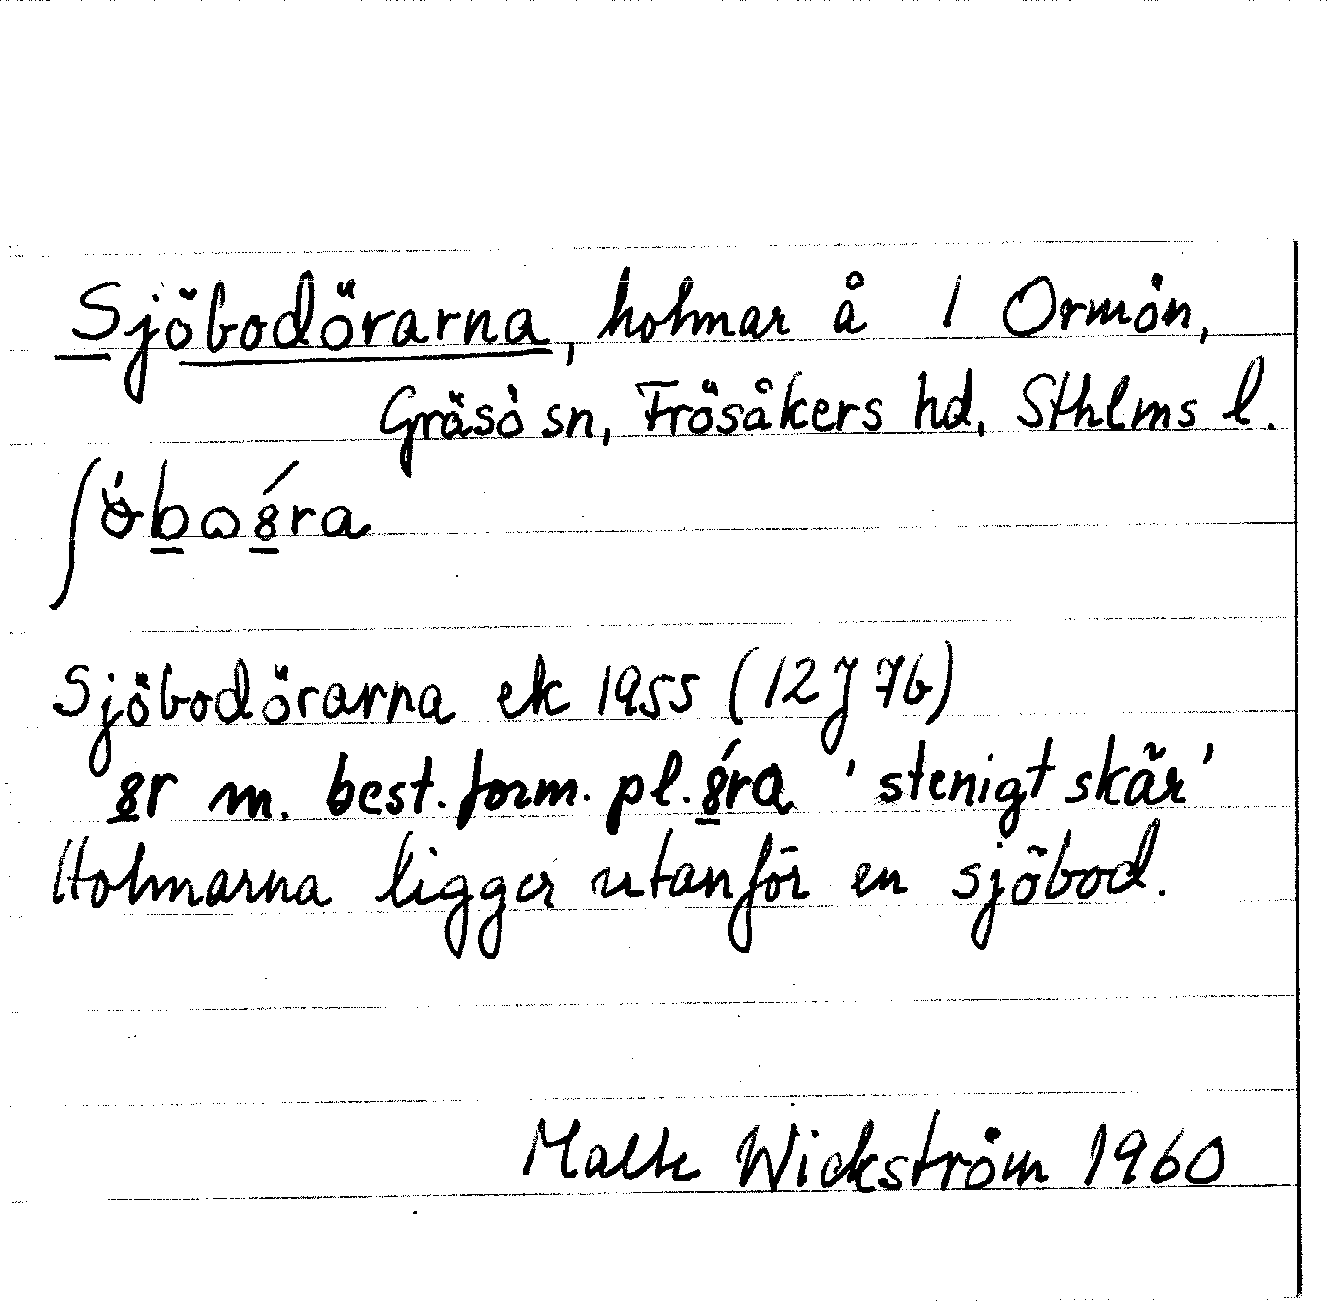 Sjöbodörarna, holmar å 1 Ormön,
Gräsö sn, Frösåkers hd, Sthlms l.
Sjöbodörarna ek 1955 (12J 7b)
m. best. form. pl. 'stenigt skär'
Holmarna ligger utanför en sjöbod.
Malte Wickström 1960